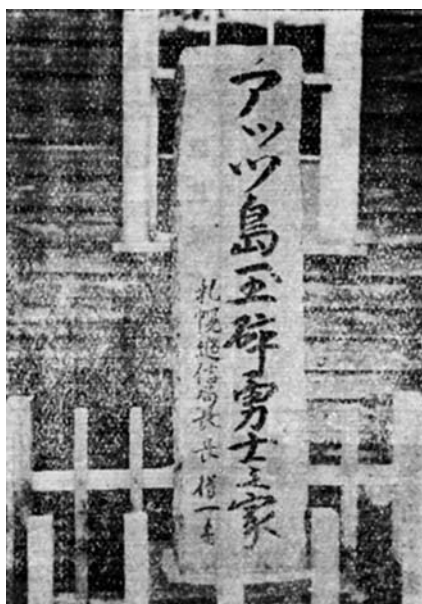 アッツ島玉砕勇士之家
札幌逓信局長 長 一書